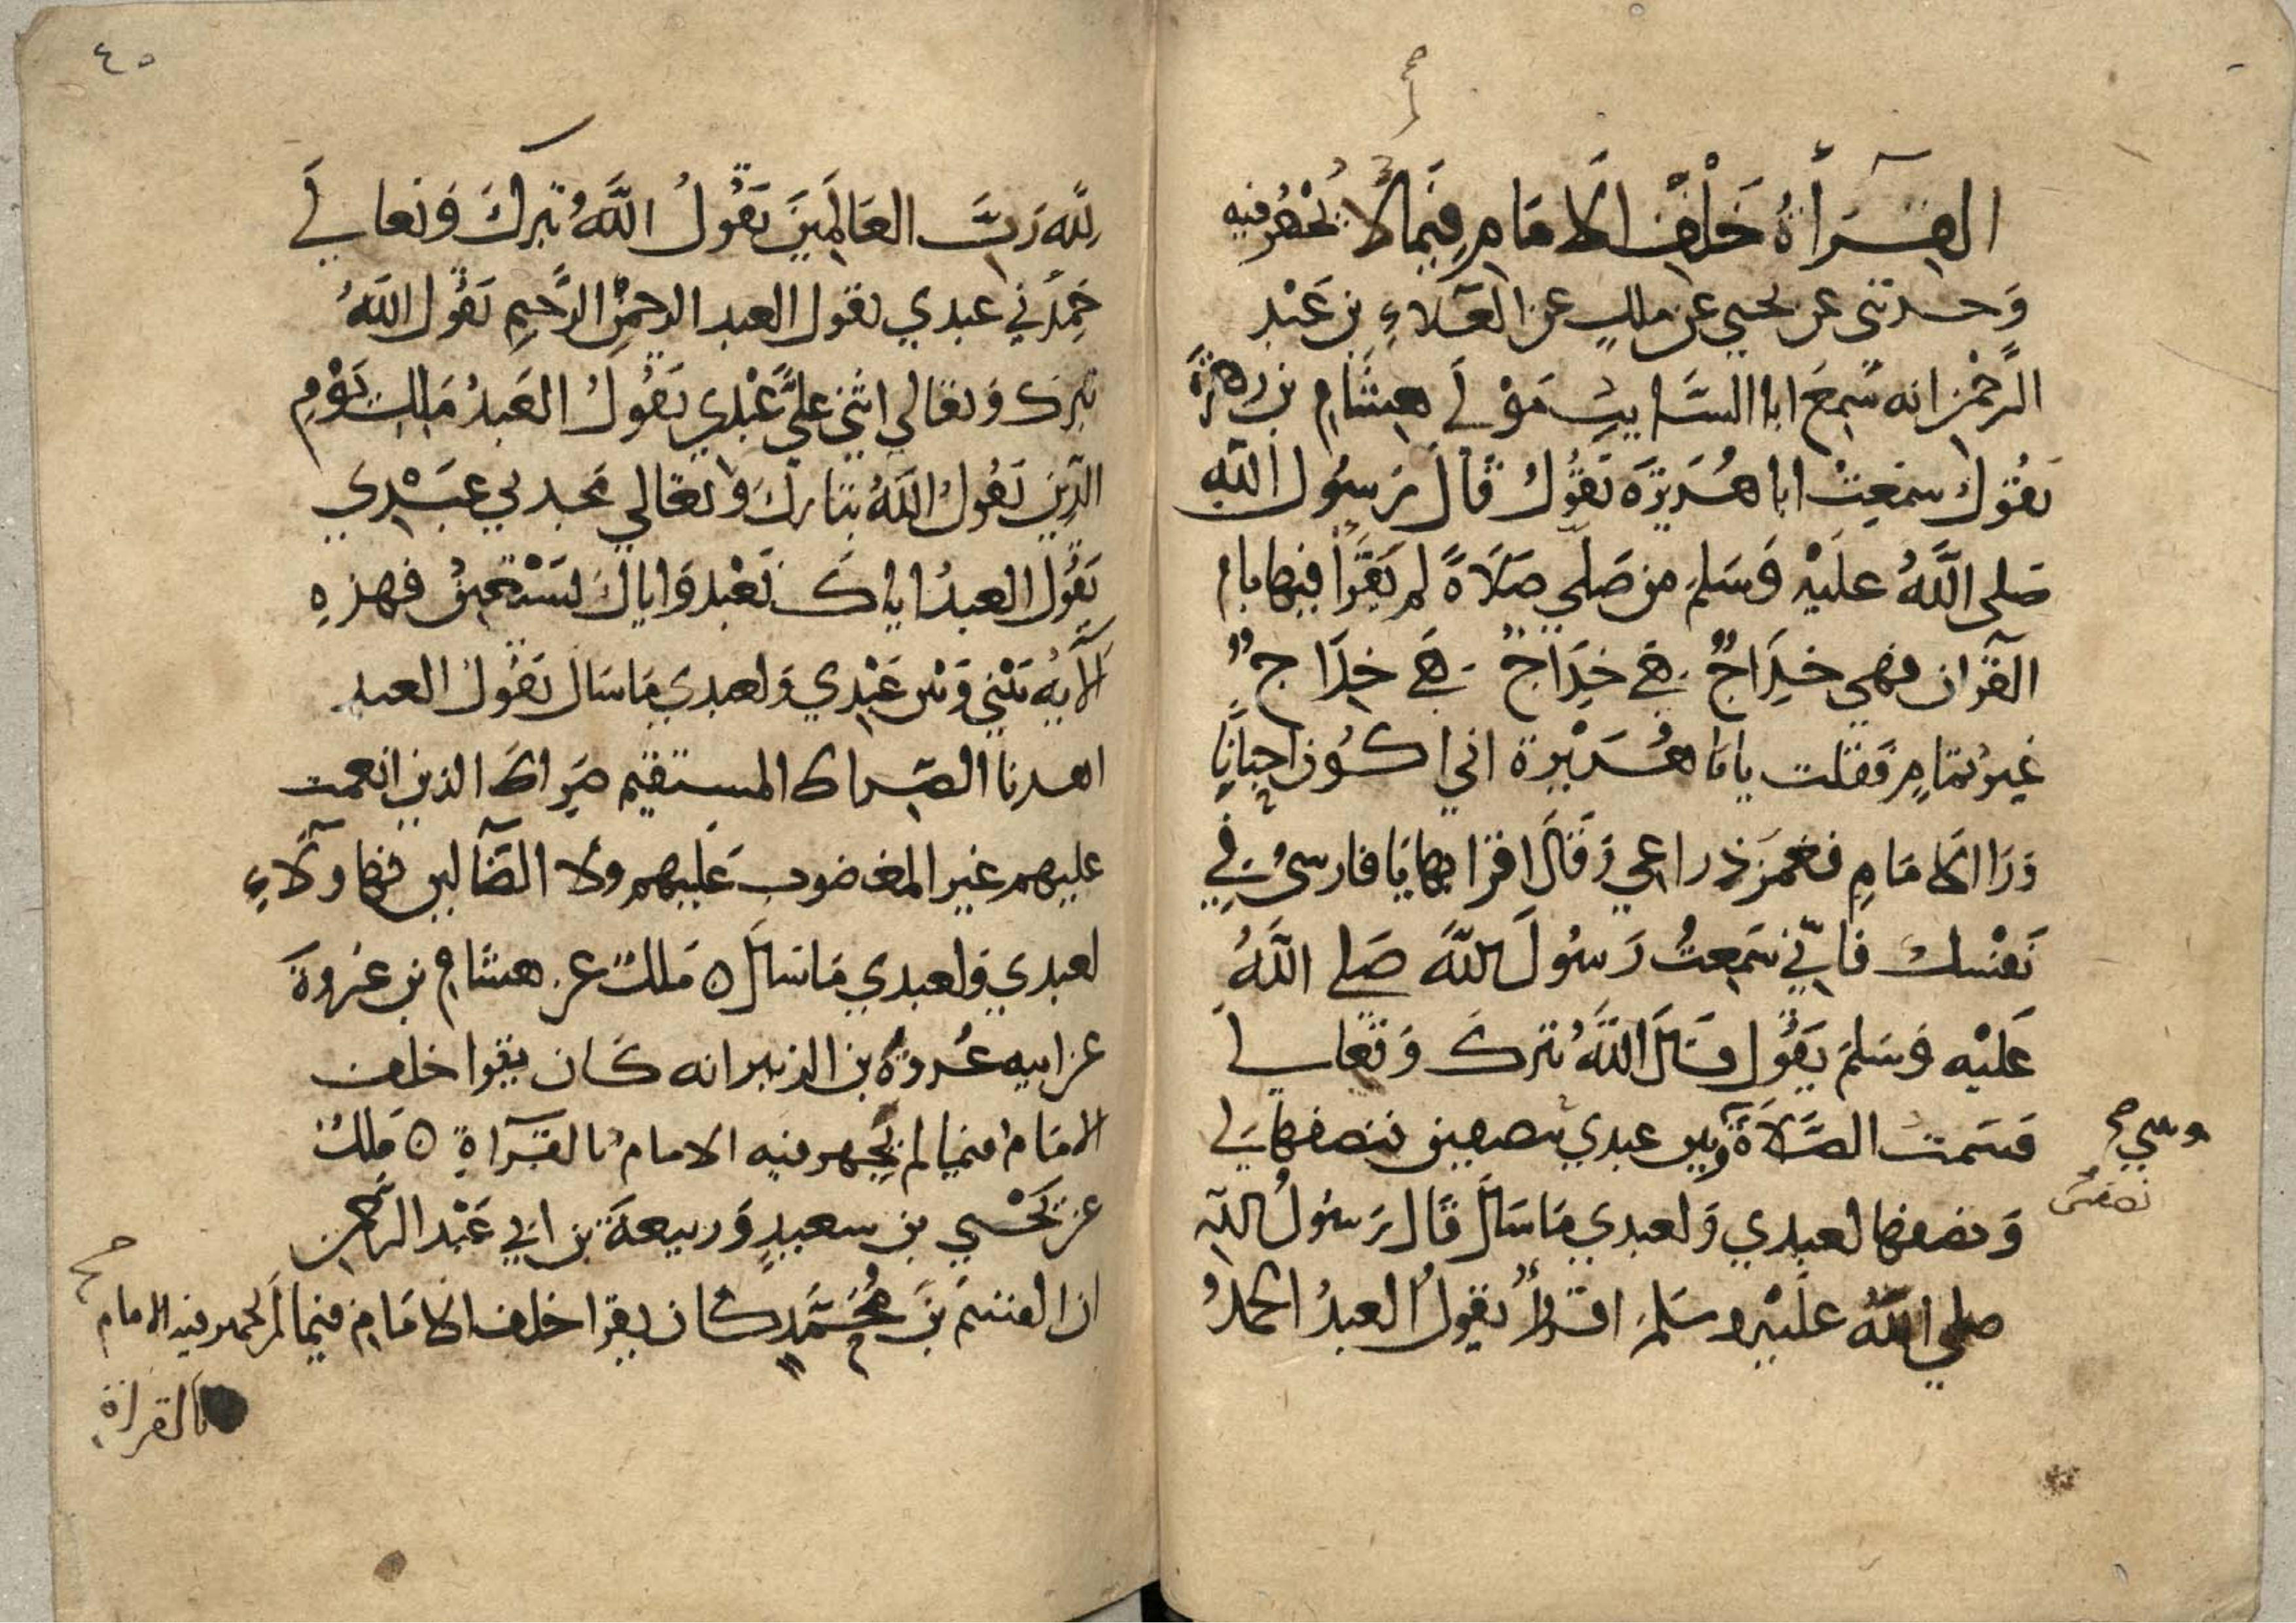 القراءة خلف الامام فيما لا يجهر فيه
وحدثني عن يحيى عن ملك عن العلاء بن عبد
الرحمن انه سمع ابا السايب مولى هشام بن زهرة
يقول سمعت ابا هريرة يقول قال رسول الله
صلى الله عليه وسلم من صلى صلاة لم يقرا فيها بام
القران فهي خداج هي خداج هي خداج
غير تمام فقلت يابا هريرة اني اكون احيانا
ورا الامام فغمز ذراعي وقال اقرا بها يا فارسي في
نفسك فاني سمعت رسول الله صلى الله
عليه وسلم يقول قال الله تبرك وتعالى
قسمت الصلاة وبين عبدي بنصفين فنصفها لي
بيني صح
نصفين
ونصفها لعبدي ولعبدي ما سال قال رسول الله
صلى الله عليه وسلم اقروا يقول العبد الحمد
٤٥
لله رب العالمين يقول الله تبرك وتعالى
حمدني عبدي يقول العبد الرحمن الرحيم يقول الله
تبرك وتعالى اثنى علي عبدي يقول العبد ملك يوم
الدين يقول الله تبارك وتعالى مجدني عبدي
يقول العبد اياك نعبد واياك نستعين فهذه
الآية بيني وبين عبدي ولعبدي ما سال يقول العبد
اهدنا الصراط المستقيم صراط الذين انعمت
عليهم غير المغضوب عليهم ولا الضالين فهاولاء
لعبدي ولعبدي ما سال ه ملك عن هشام بن عروة
عن ابيه عروة بن الزبير انه كان يقرا خلف
الامام فيما لم يجهر فيه الامام بالقراءة ه ملك
عن يحيى بن سعيد وربيعة بن ابي عبد الرحمن
ان القسم بن محمد كان يقرا خلف الامام فيما لم يجهر فيه الامام
صح
بالقراة